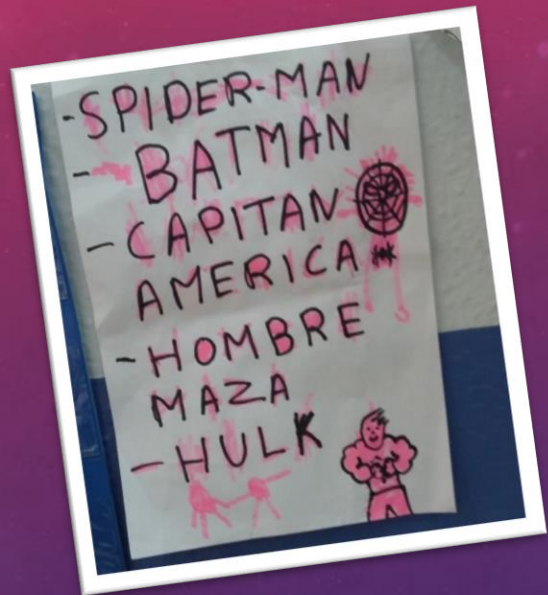 -SPIDER-MAN
- BATMAN
-CAPITAN
AMERICA
-HOMBRE
MAZA
-HULK